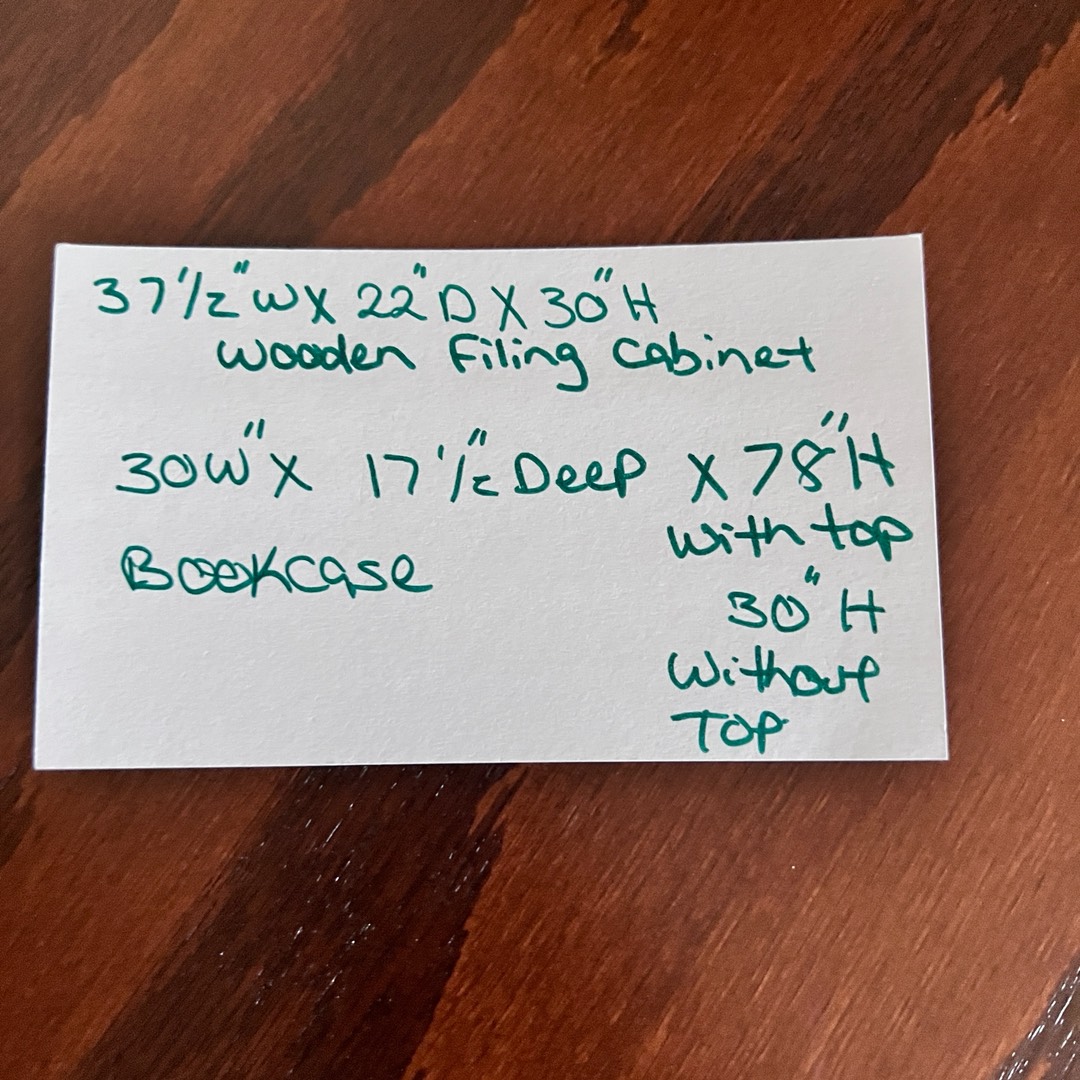 37 1/2" W X 22" D X 30" H
Wooden Filing Cabinet
30W" X 17 1/2" Deep X 78" H
With top
Bookcase
30" H
Without
TOP